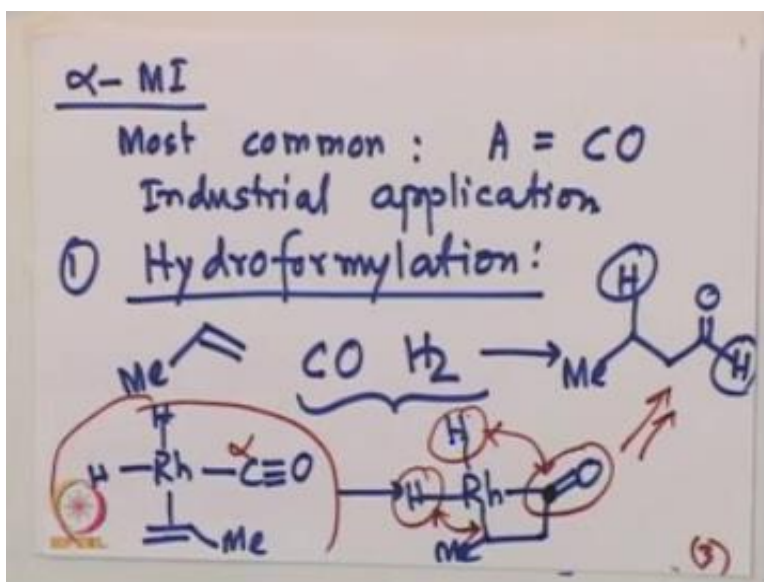 α-MI
Most common : A = CO
Industrial application
① Hydroformylation:
Me CO H2 Me H O H
H
H-Rh-C≡O α
Me
H
H Rh O
Me
(3)